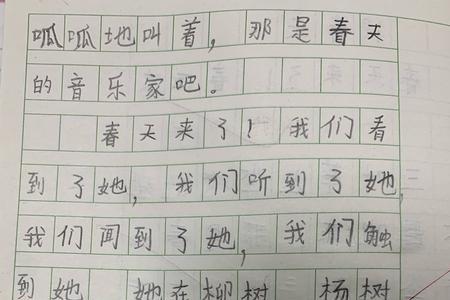 呱呱地叫着，那是春天
的音乐家吧。
春天来了！我们看
到了她，我们听到了她，
我们闻到了她，我们触
到她 她在柳树 杨树